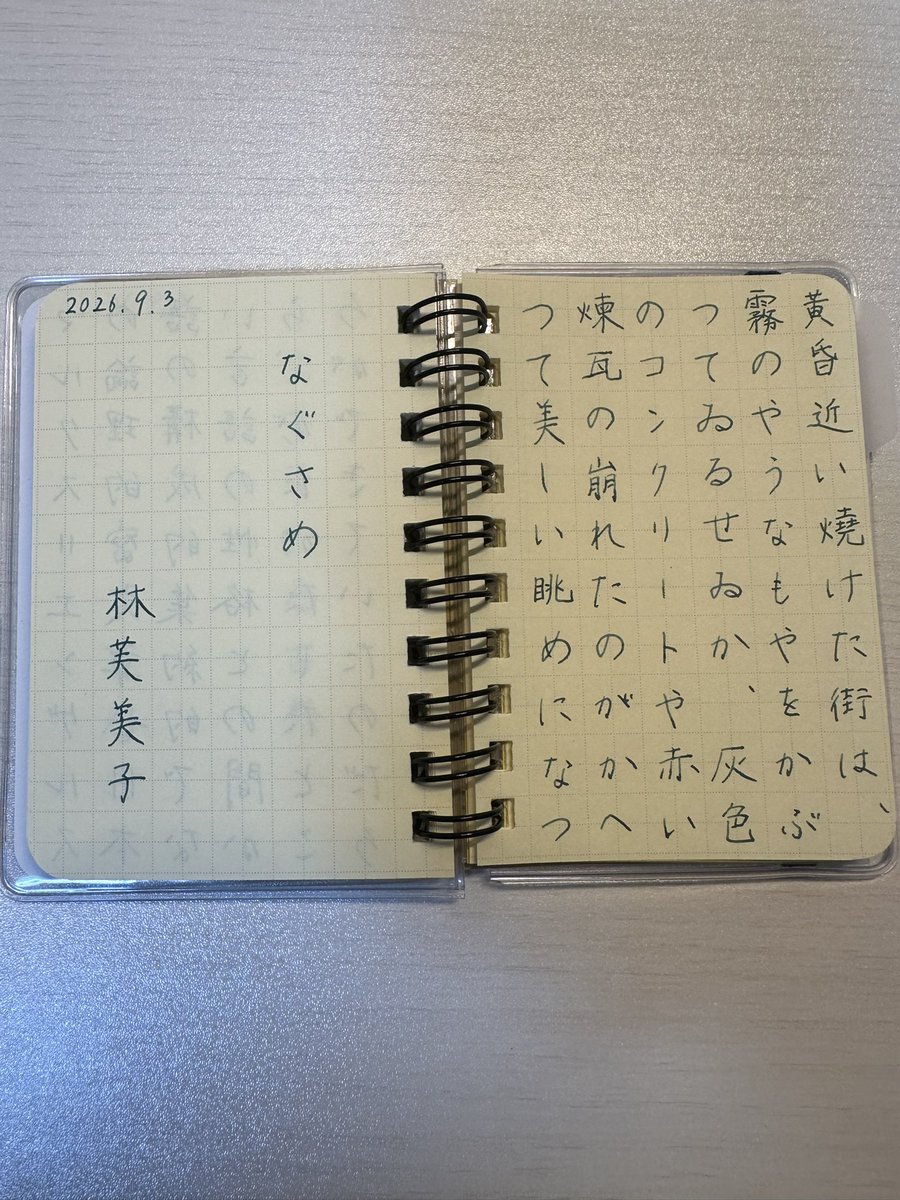 黄昏近い燒けた街は、
霧のやうなもやをかぶ
つてゐるせゐか、灰色
のコンクリートや赤い
煉瓦の崩れたのがかへ
つて美しい眺めになつ
2026.9.3
なぐさめ
林芙美子